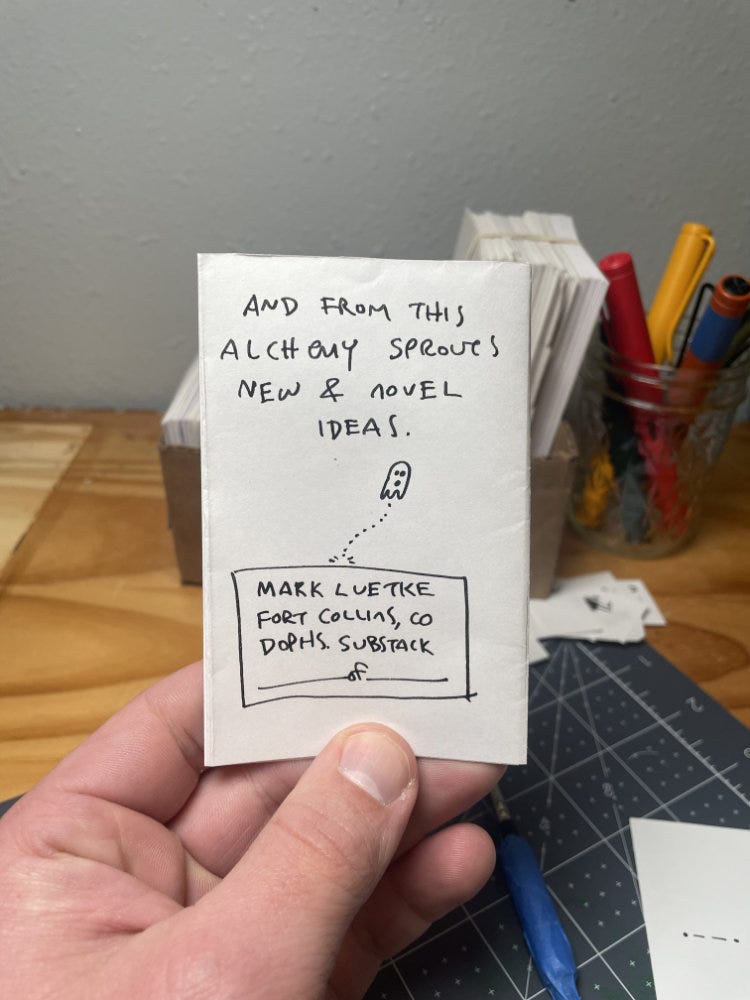 AND FROM THIS
ALCHEMY SPROUTS
NEW & NOVEL
IDEAS.
MARK LUETKE
FORT COLLINS, CO
DOPHS. SUBSTACK
______of______
1
2